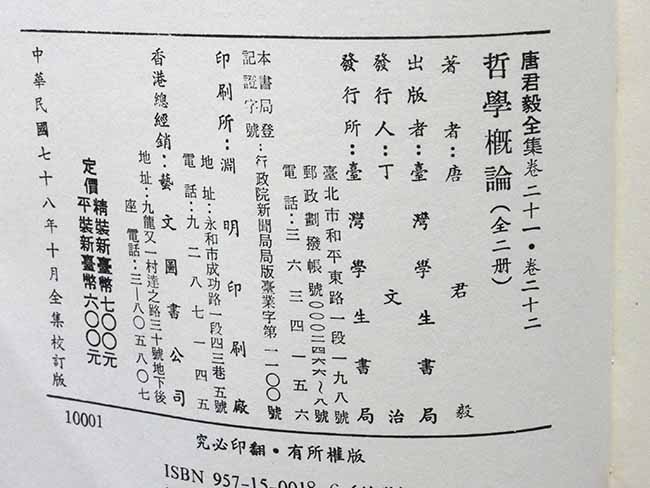 唐君毅全集卷二十一・卷二十二
哲學概論（全二册）
著者：唐君毅
出版者：臺灣學生書局
發行人：丁文治
發行所：臺灣學生書局
臺北市和平東路一段一九八號
郵政劃撥帳號〇〇〇二四六六～八號
電話：三六三四一五六
本書局登
記證字號：行政院新聞局局版臺業字第一一〇〇號
印刷所：淵明印刷廠
地址：永和市成功路一段四三巷五號
電話：九二八七一四五
香港總經銷：藝文圖書公司
地址：九龍又一村達之路三十號地下後
座 電話：三―八〇五八〇七
定價 精裝新臺幣七〇〇元
平裝新臺幣六〇〇元
中華民國七十八年十月全集校訂版
10001
究必印翻・有所權版
ISBN 957-15-0018-6